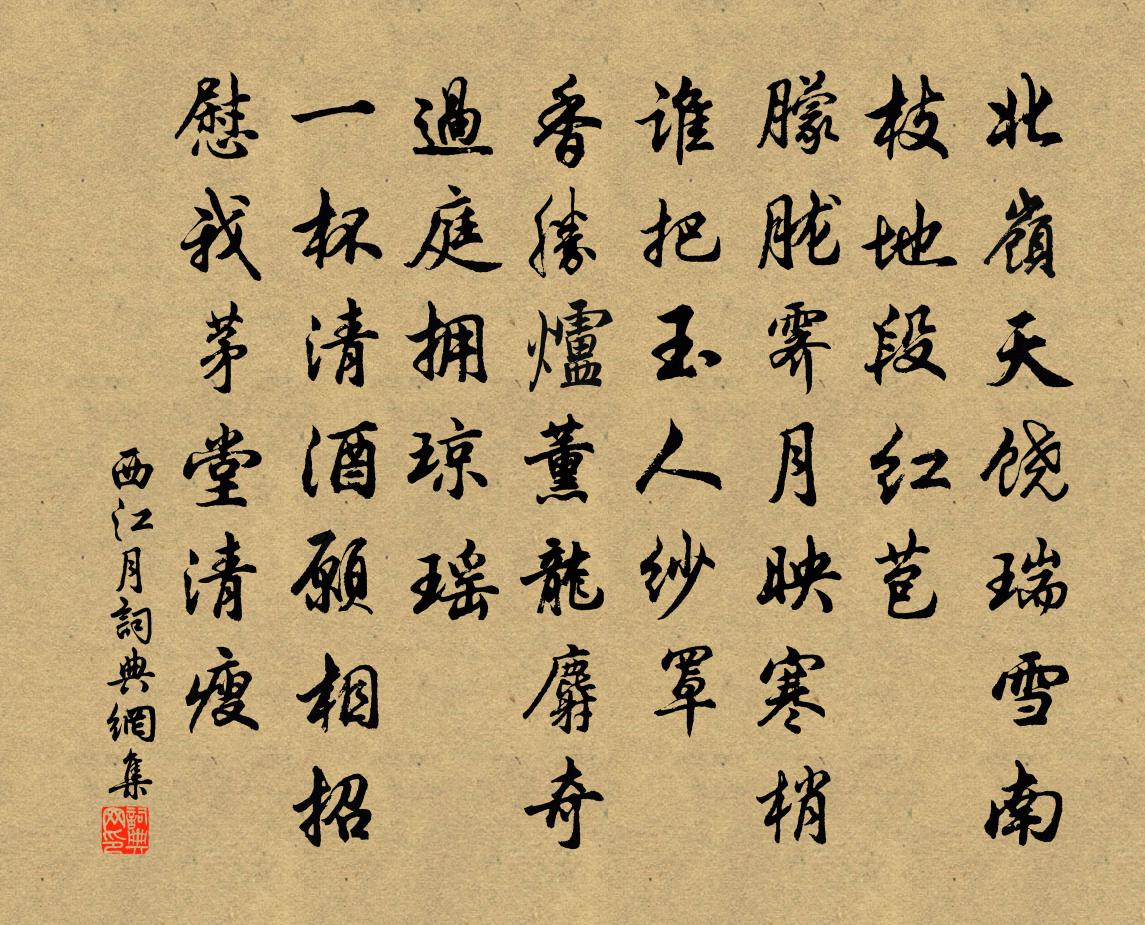 北嶺天饶瑞雪南
枝地段红苞
朦胧霁月映寒梢
谁把玉人纱罩
香勝爐薰龍麝奇
過庭拥琼瑶
一杯清酒願相招
慰我茅堂清瘦
西江月詞典網集
詞典网印